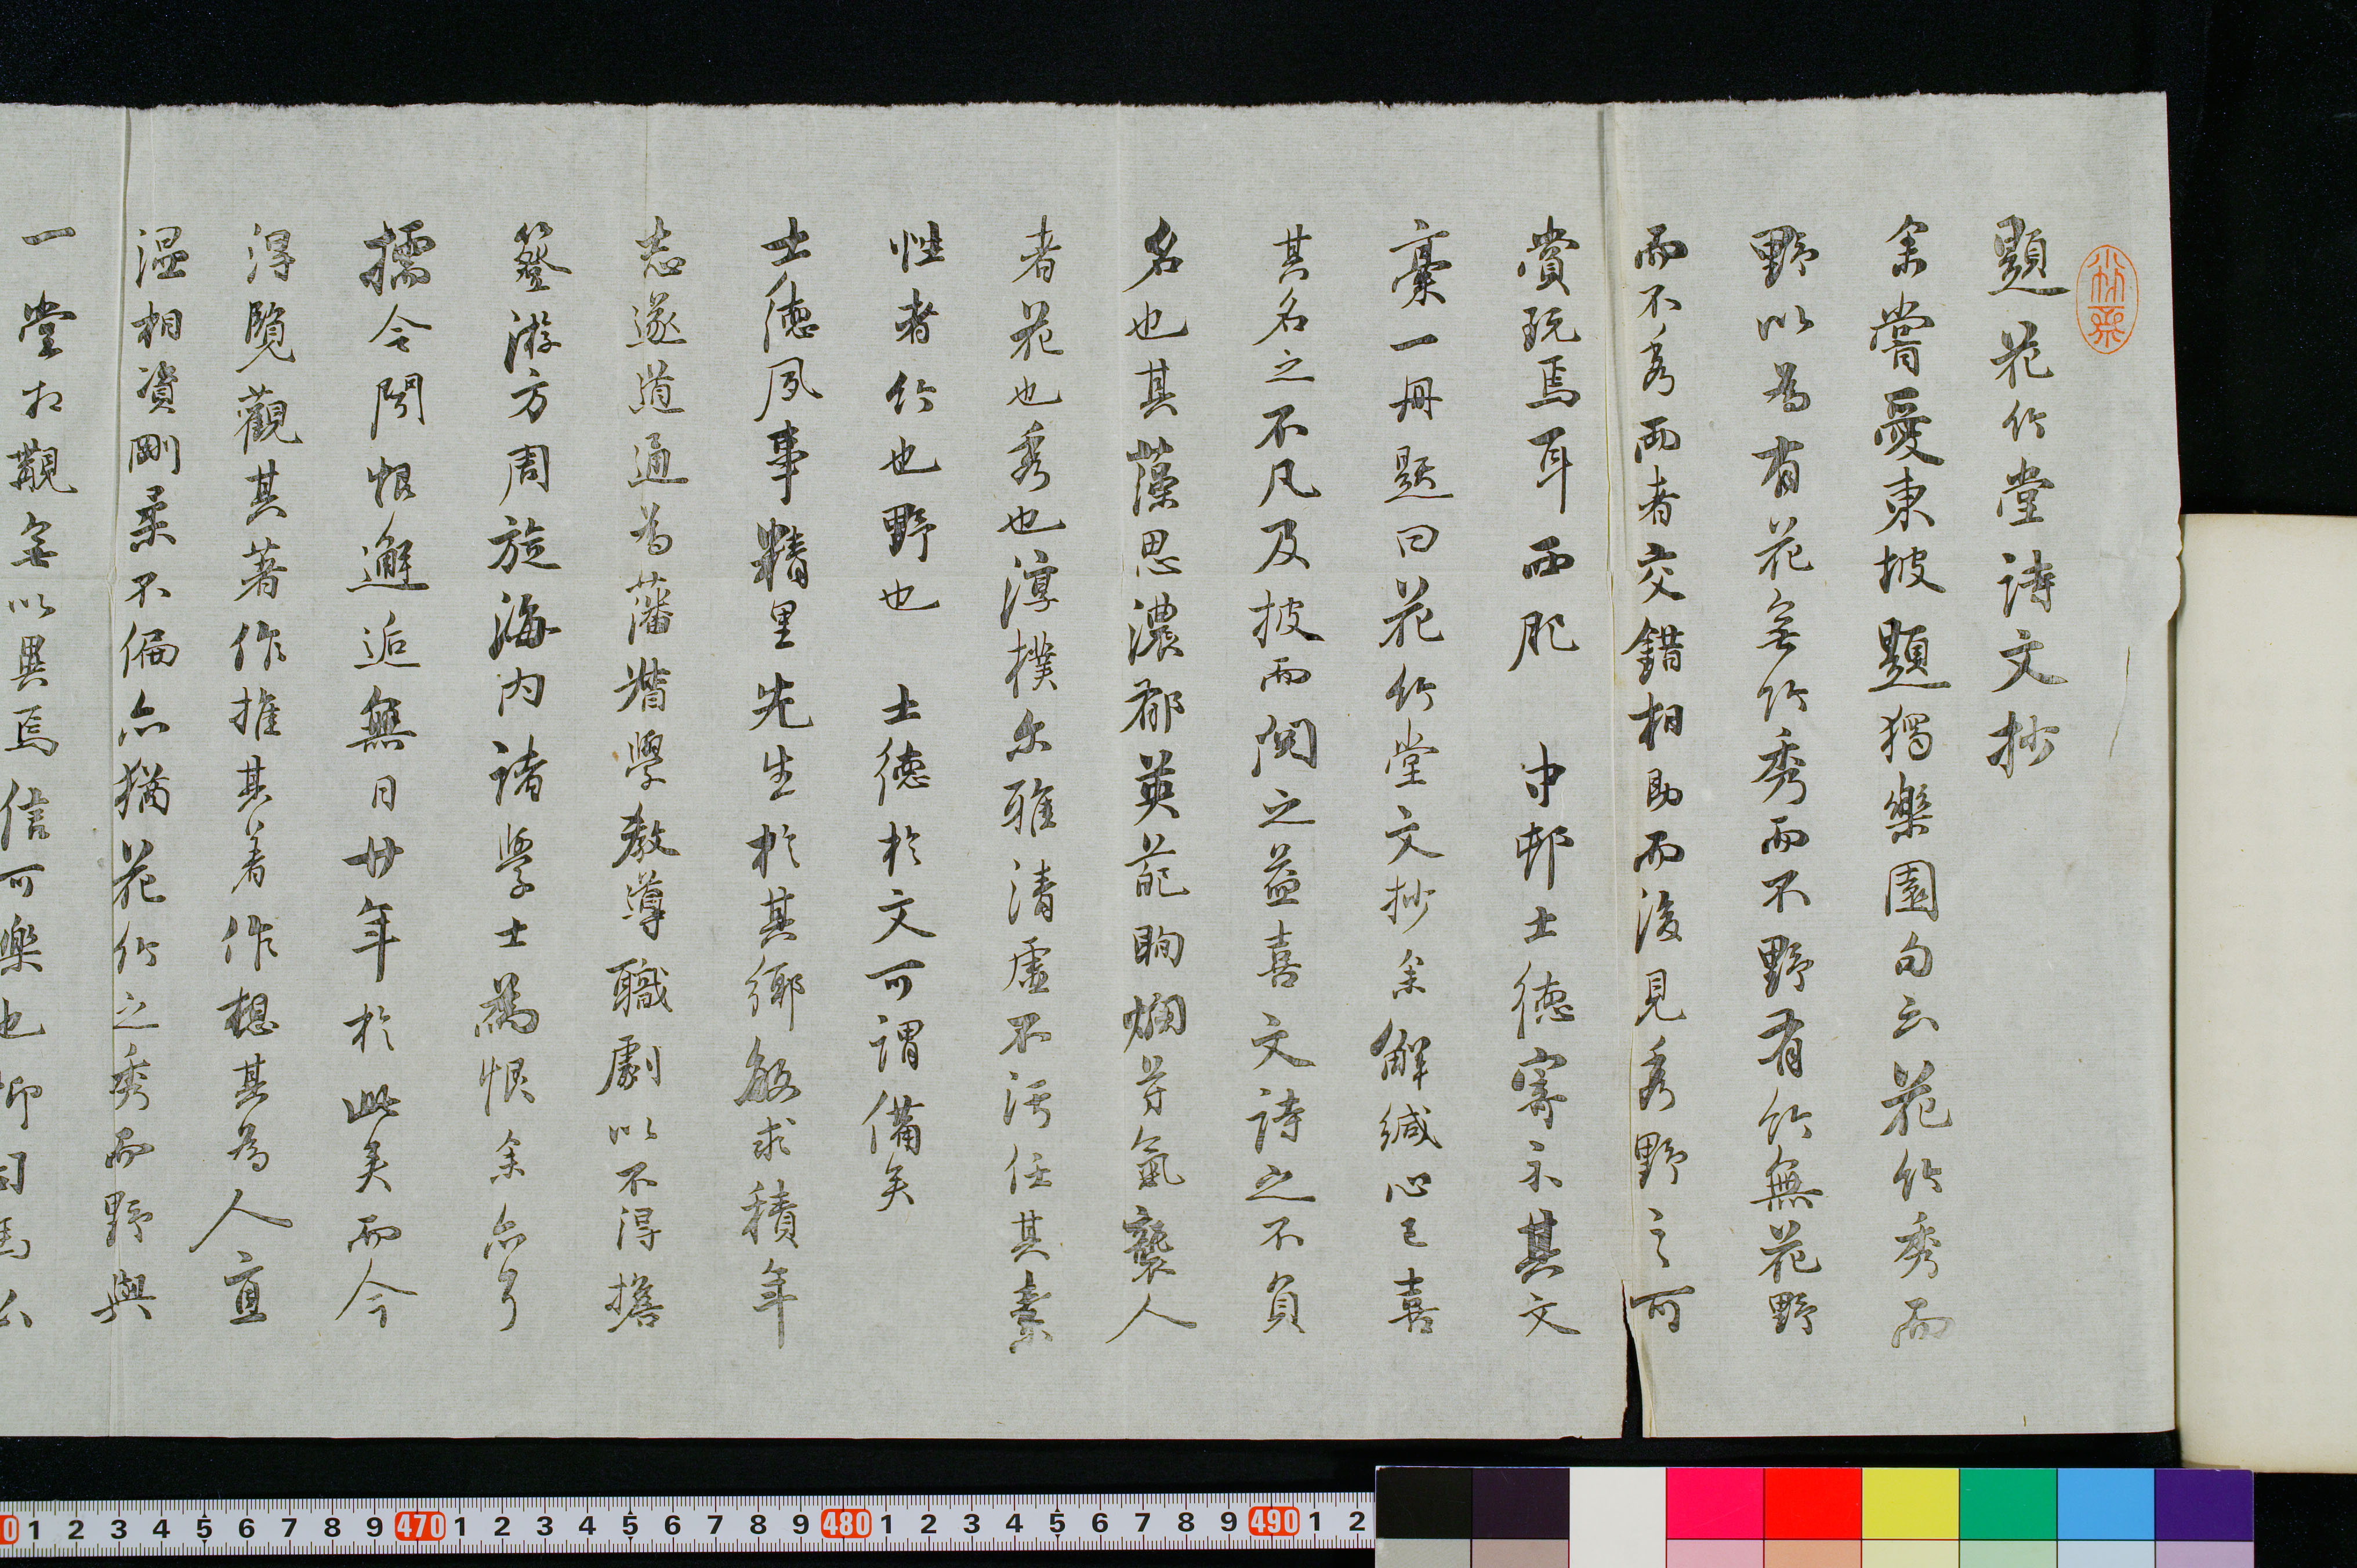 題花竹堂詩文抄
余嘗愛東坡題獨樂園句云花竹秀而
野以為有花無竹秀而不野有竹無花野
而不秀兩者交錯相助而後見秀野之可
賞玩焉耳西肥　中邨士德寄示其文
稾一冊題曰花竹堂文抄余解緘心已喜
其名之不凡及披而閲之益喜文詩之不負
名也其藻思濃郁英葩絢爛芬氣襲人
者花也秀也淳撲尔雅清虛不污任其素
性者竹也野也　士德於文可謂備矣
士德夙事精里先生於其鄉敏求積年
志遂道通為藩黌學教導職劇以不得擔
簦游方周旋海内諸學士為恨余亦以
孺今閲恨邂逅無日廿年於此矣而今
得覽觀其著作推其著作想其為人直
溫相資剛柔不偏亦猶花竹之秀而野與
一堂相觀無以異焉信可樂也
司馬公
小竹齋
0 1 2 3 4 5 6 7 8 9 470 1 2 3 4 5 6 7 8 9 480 1 2 3 4 5 6 7 8 9 490 1 2